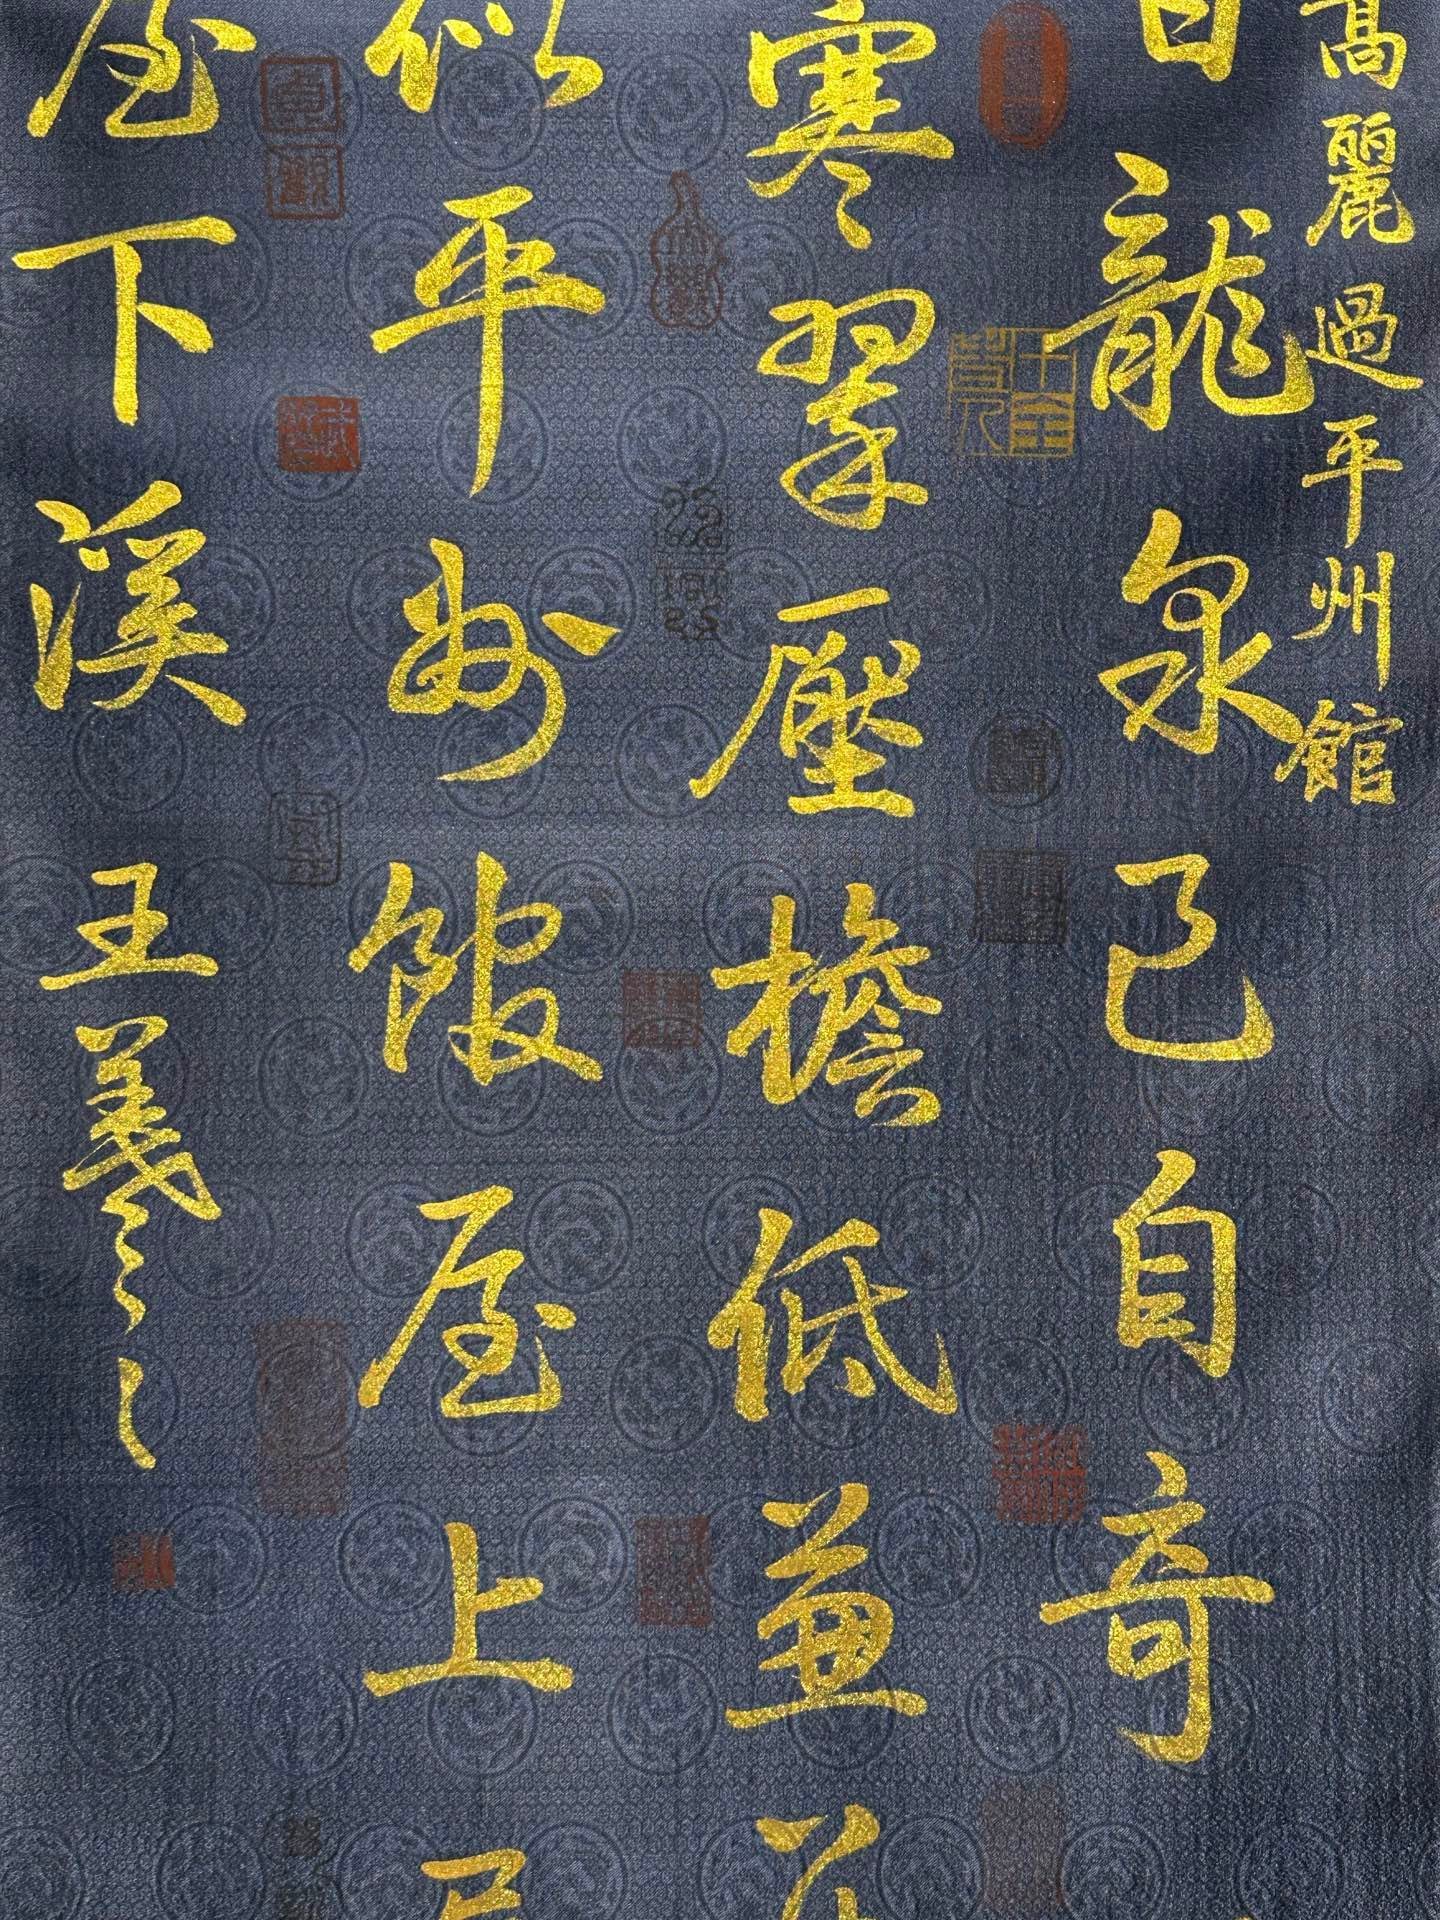 高麗過平州館
白龍泉已自奇
寒翠壓檐低蓋
似平州館屋上
屋下溪
王羲之